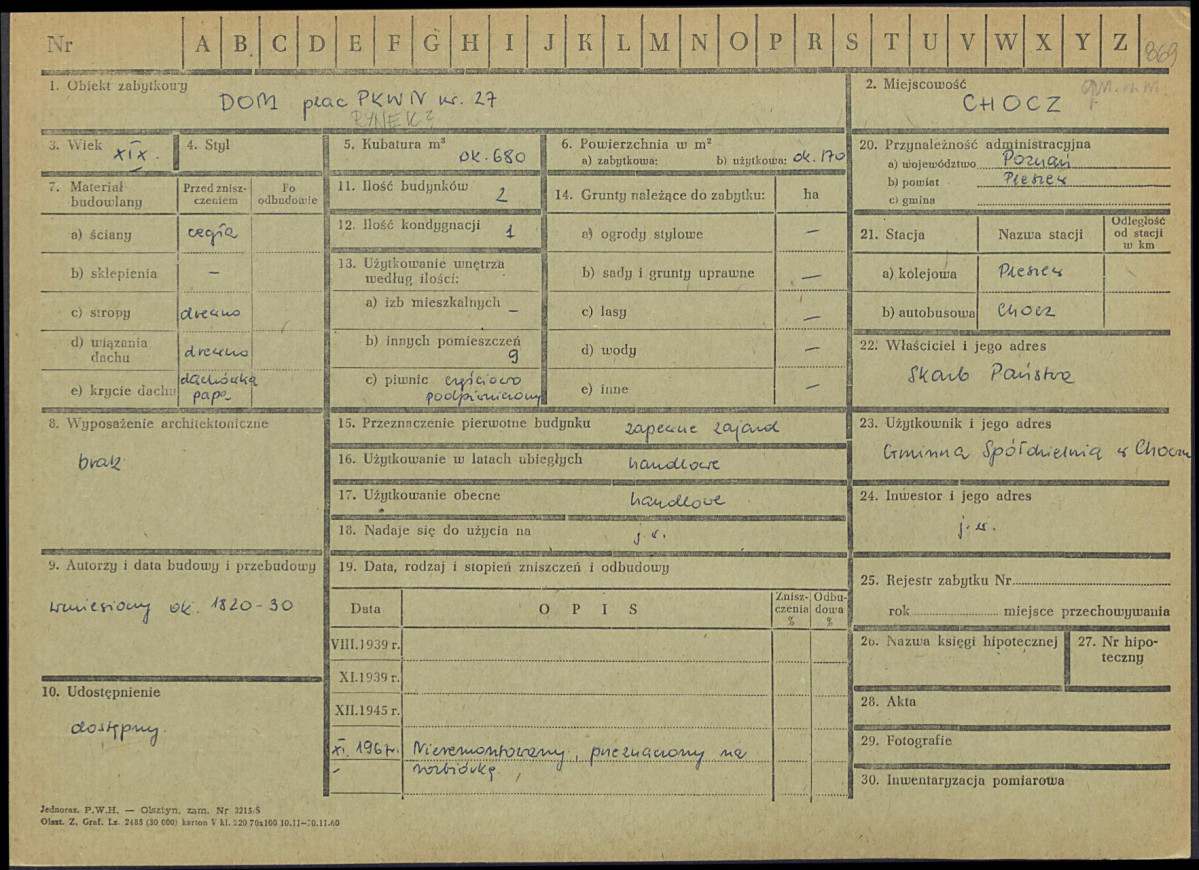 Nr A B C D E F G H I J K L M N O P R S T U V W X Y Z 869
1. Obiekt zabytkowy
DOM plac PKWN nr. 27
RYNEK?
2. Miejscowość
CHOCZ
3. Wiek XIX.
4. Styl
5. Kubatura m³
ok. 680
6. Powierzchnia w m²
a) zabytkowa: b) użytkowa: ok. 170
7. Materiał budowlany
Przed zniszczeniem
Po odbudowie
a) ściany cegła
b) sklepienia –
c) stropy drewno
d) wiązania dachu drewno
e) krycie dachu dachówka papa
8. Wyposażenie architektoniczne
brak
9. Autorzy i data budowy i przebudowy
wzniesiony ok. 1820-30
10. Udostępnienie
dostępny
11. Ilość budynków 2
12. Ilość kondygnacji 1
13. Użytkowanie wnętrza według ilości:
a) izb mieszkalnych –
b) innych pomieszczeń 9
c) piwnic częściowo podpiwniczony
14. Grunty należące do zabytku: ha
a) ogrody stylowe –
b) sady i grunty uprawne –
c) lasy –
d) wody –
e) inne –
15. Przeznaczenie pierwotne budynku zapewne zajazd
16. Użytkowanie w latach ubiegłych handlowe
17. Użytkowanie obecne handlowe
18. Nadaje się do użycia na j.w.
19. Data, rodzaj i stopień zniszczeń i odbudowy
Data O P I S Zniszczenia % Odbudowa %
VIII.1939 r.
XI.1939 r.
XII.1945 r.
XI. 1967r. Nieremontowany, przeznaczony na
– rozbiórkę,
20. Przynależność administracyjna
a) województwo Poznań
b) powiat Pleszew
c) gmina
21. Stacja Nazwa stacji Odległość od stacji w km
a) kolejowa Pleszew
b) autobusowa Chocz
22. Właściciel i jego adres
Skarb Państwa
23. Użytkownik i jego adres
Gminna Spółdzielnia w Choczu
24. Inwestor i jego adres
j.w.
25. Rejestr zabytku Nr
rok miejsce przechowywania
26. Nazwa księgi hipotecznej
27. Nr hipoteczny
28. Akta
29. Fotografie
30. Inwentaryzacja pomiarowa
Jednoraz. P.W.H. — Olsztyn, zam. Nr 3215/S
Olszt. Z. Graf. Lz. 2485 (30 000) karton V kl. 220 70x100 10.11—30.11.60